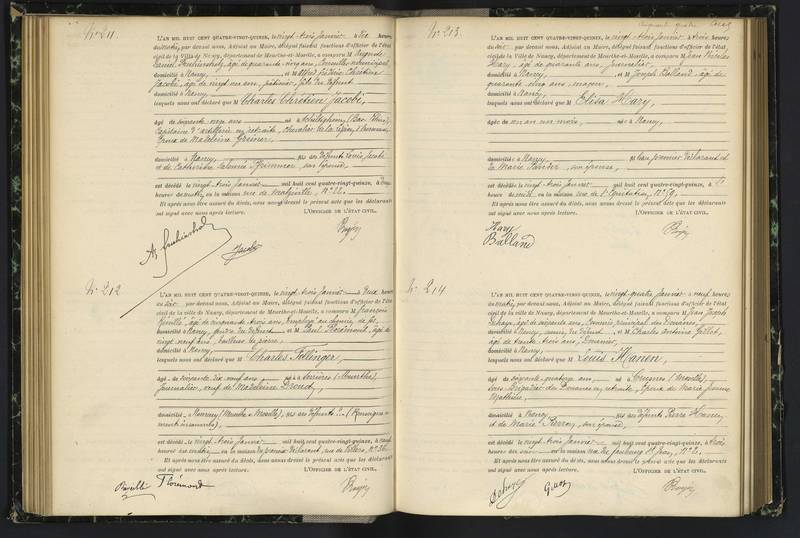 N° 211
L'AN MIL HUIT CENT QUATRE-VINGT-QUINZE, le vingt-trois Janvier à dix heures
du matin, par devant nous, Adjoint au Maire, délégué faisant fonctions d'officier de l'état
civil de la Ville de Nancy, département de Meurthe-et-Moselle, a comparu M
âgé de quarante-cinq ans, Conseiller municipal
domicilié à Nancy, et M Alfred Frédéric Chrétien
Jacobi, âgé de vingt un ans, fils du défunt
domicilié à Nancy,
lesquels nous ont déclaré que M Charles Chrétien Jacobi,
âgé de soixante onze ans né à (Bas-Rhin),
Capitaine d'artillerie en retraite, chevalier de la légion d'honneur,
Époux de Madeleine Greiner,
domicilié à Nancy, fils des défunts Louis Jacobi
et de Catherine Salomé, son épouse,
est décédé le vingt-trois Janvier mil huit cent quatre-vingt-quinze, à
heures du matin, en la maison rue de N° 22.
Et après nous être assuré du décès, nous avons dressé le présent acte que les déclarants
ont signé avec nous après lecture. L'OFFICIER DE L'ÉTAT CIVIL.
Jacobi
N° 212
L'AN MIL HUIT CENT QUATRE-VINGT-QUINZE, le vingt-trois Janvier à deux heures
du soir par devant nous, Adjoint au Maire, délégué faisant fonctions d'officier de l'état
civil de la ville de Nancy, département de Meurthe-et-Moselle, a comparu M François
âgé de cinquante trois ans, employé au chemin de fer,
domicilié à Nancy, gendre du défunt et M Paul Florémont, âgé de
vingt neuf ans, tailleur de pierre,
domicilié à Nancy,
lesquels nous ont déclaré que M Charles Fellinger,
âgé de soixante dix neuf ans né à (Meurthe),
Journalier, veuf de Madeleine Drouot,
domicilié à Nancy (Meurthe & Moselle), fils des défunts ?
est décédé le vingt-trois Janvier mil huit cent quatre-vingt-quinze, à
heures du en la maison rue de N° 36.
Et après nous être assuré du décès, nous avons dressé le présent acte que les déclarants
ont signé avec nous après lecture. L'OFFICIER DE L'ÉTAT CIVIL.
Florémond
N° 213
L'AN MIL HUIT CENT QUATRE-VINGT-QUINZE, le vingt-trois Janvier à trois heures
du soir par devant nous, Adjoint au Maire, délégué faisant fonctions d'officier de l'état
civil de la Ville de Nancy, département de Meurthe-et-Moselle, a comparu M Jean Nicolas
Hary, âgé de quarante ans, journalier,
domicilié à Nancy, et M Joseph Balland, âgé de
quarante cinq ans, maçon,
domicilié à Nancy,
lesquels nous ont déclaré que M Elisa Hary,
âgée de un an un mois, née à Nancy,
domiciliée à Nancy, fille du premier déclarant et
de Marie son épouse,
est décédée le vingt-trois Janvier mil huit cent quatre-vingt-quinze, à
heures du en la maison rue de l'Équitation, N° 50.
Et après nous être assuré du décès, nous avons dressé le présent acte que les déclarants
ont signé avec nous après lecture. L'OFFICIER DE L'ÉTAT CIVIL.
Hary
Balland
N° 214
L'AN MIL HUIT CENT QUATRE-VINGT-QUINZE, le vingt-quatre Janvier à neuf heures
du matin, par devant nous, Adjoint au Maire, délégué faisant fonctions d'officier de l'état
civil de la ville de Nancy, département de Meurthe-et-Moselle, a comparu M Jean Joseph
âgé de soixante ans, Commis principal des Douanes,
domicilié à Nancy, du défunt et M Charles Antoine
âgé de trente trois ans, Douanier,
domicilié à Nancy,
lesquels nous ont déclaré que M Louis Hanen,
âgé de soixante-quatorze ans né à (Moselle),
Sous Brigadier des Douanes en retraite, Époux de Marie Jeanne
Mathieu,
domicilié à Nancy fils des défunts Pierre Hanen,
et de Marie Pierron, son épouse,
est décédé le vingt-trois Janvier mil huit cent quatre-vingt-quinze, à trois
heures du soir en la maison rue du faubourg St Jean, N° 2.
Et après nous être assuré du décès, nous avons dressé le présent acte que les déclarants
ont signé avec nous après lecture. L'OFFICIER DE L'ÉTAT CIVIL.